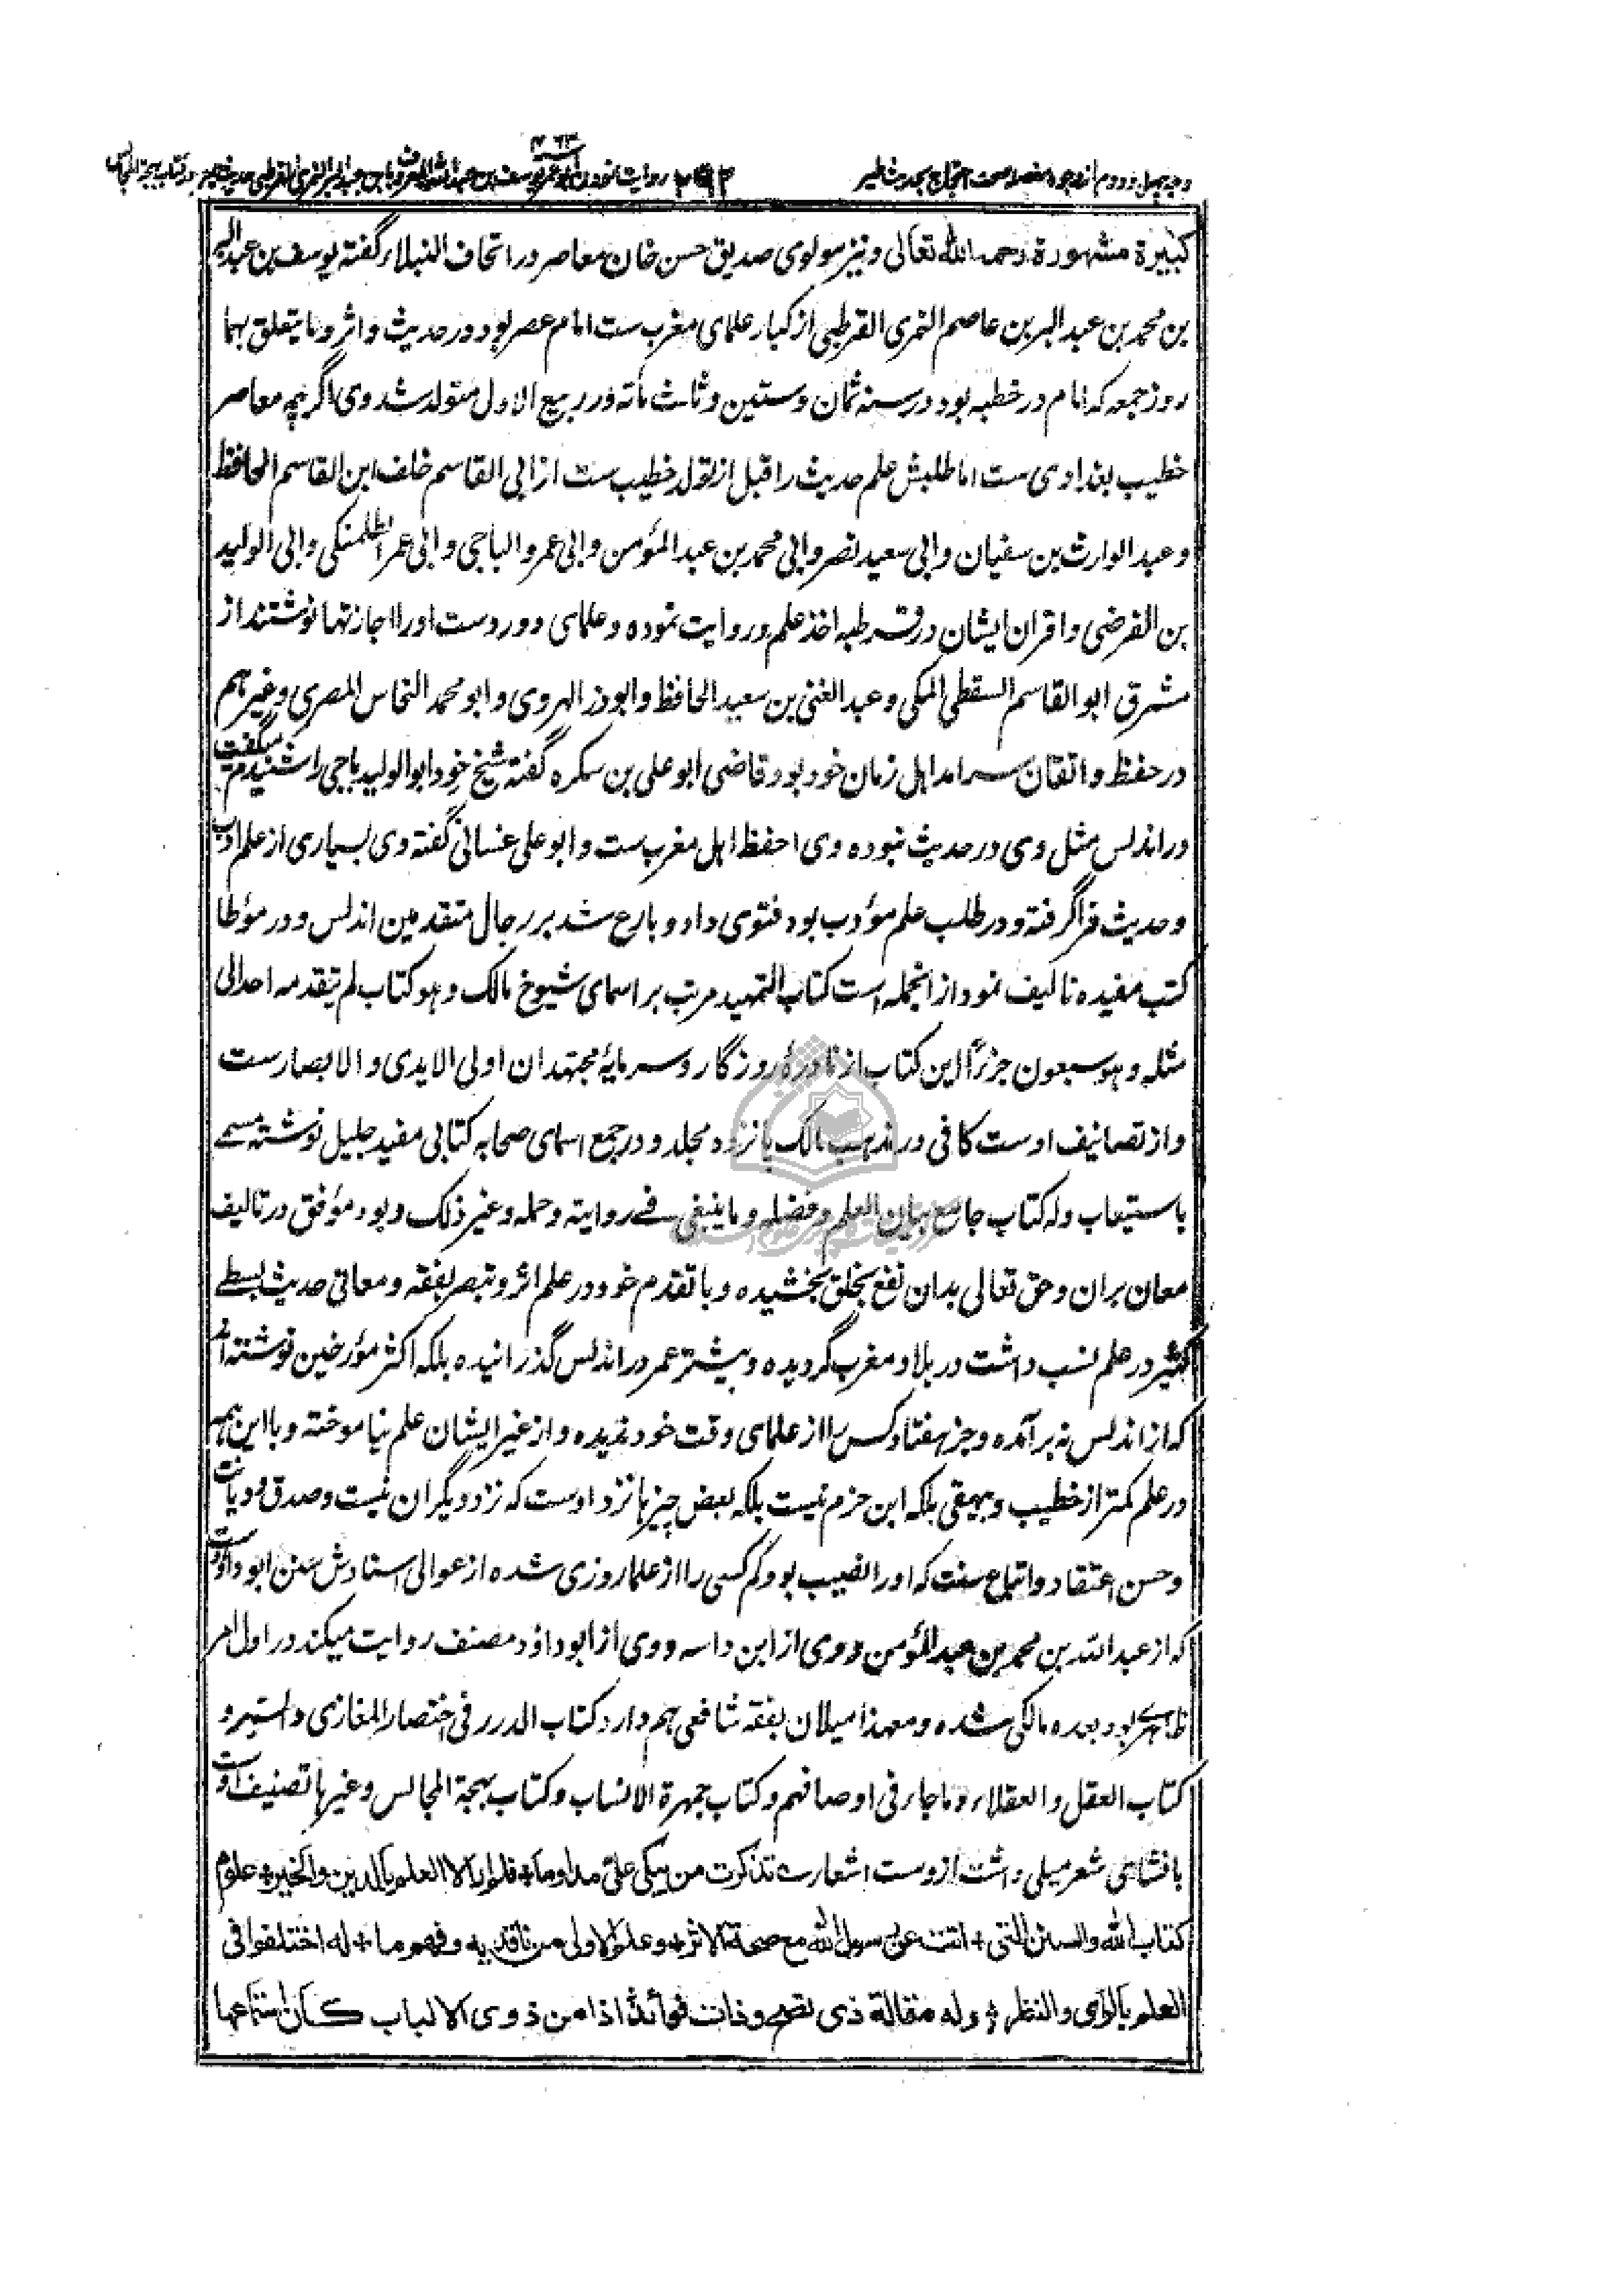 وجه چهل و دوم از وجوه مفصله صحت احتجاج بحدیث طیر ۲۹۲ روایت نمودن ابو عمر یوسف بن عبد الله المعروف بابن عبد البر النمری القرطبی حدیث طیر در کتاب بهجة المجالس
۴۶۳
کبیرة مشهورة رحمه الله تعالی و نیز مولوی صدیق حسن خان معاصر در اتحاف النبلاء گفته یوسف بن عبد الله
بن محمد بن عبد البر بن عاصم النمری القرطبی از کبار علمای مغرب ست امام عصر بود در حدیث و اثر و ما یتعلق بهما
روز جمعه که امام در خطبه بود در سنه ثمان و ستین و ثلث مأته در ربیع الاول متولد شد وی اگرچه معاصر
خطیب بغدادی ست اما طلبش علم حدیث را قبل از تولد خطیب ست از ابی القاسم خلف ابن القاسم الحافظ
و عبد الوارث بن سفیان و ابی سعید نصر و ابی محمد بن عبد المؤمن و ابی عمرو الباجی و ابی عمر الطلمنکی و ابی الولید
بن الفرضی و اقران ایشان در قرطبه اخذ علم و روایت نموده و علمای دور دست او را اجازتها نوشتند از
مشرق ابو القاسم السقطی المکی و عبد الغنی بن سعید الحافظ و ابوذر الهروی و ابو محمد النحاس المصری و غیرهم
در حفظ و اتقان سرامد اهل زمان خود بود قاضی ابو علی بن سکره گفته شیخ خود ابو الولید باجی را شنیدم میگفت
در اندلس مثل وی در حدیث نبوده وی احفظ اهل مغرب ست و ابو علی غسانی گفته وی بسیاری از علم ادب
و حدیث فرا گرفته و در طلب علم مؤدب بود فتوی داد و بارع شد بر رجال متقدمین اندلس و در مؤطا
کتب مفیده تالیف نمود از انجمله است کتاب التمهید مرتب بر اسمای شیوخ مالک و هو کتاب لم یتقدمه احد الی
مثله و هو سبعون جزءًا این کتاب از نادرهٔ روزگار و سرمایهٔ مجتهدان اولی الایدی و الابصار ست
و از تصانیف اوست کافی در مذهب مالک پانزده مجلد و در جمع اسمای صحابه کتابی مفید جلیل نوشته مسمی
باستیعاب و له کتاب جامع بیان العلم و فضله و ما ینبغی فی روایته و حمله و غیر ذلک و بود مؤفق در تالیف
معان بران و حق تعالی بدان نفع بخلق بخشیده و با تقدم خود در علم اثر و تبصر بفقه و معانی حدیث بسطی
کثیر در علم نسب داشت در بلاد مغرب گردیده و بیشتر عمر در اندلس گذرانیده بلکه اکثر مؤرخین نوشته اند
که از اندلس نه برآمده و جز هفتاد کس را از علمای وقت خود ندیده و از غیر ایشان علم نیاموخته و با این همه
در علم کمتر از خطیب و بیهقی بلکه ابن حزم نیست بلکه بعض چیزها نزد اوست که نزد دیگران نیست و صدق و دیانت
و حسن اعتقاد و اتباع سنت که او را نصیب بود کم کسی را از علما روزی شده از عوالی اسنادش سنن ابو داود ست
که از عبد الله بن محمد بن عبد المؤمن و وی از ابن داسه و وی از ابو داؤد مصنف روایت میکند در اول امر
ظاهری بود بعده مالکی شده و معهذا میلان بفقه شافعی هم دارد کتاب الدرر فی اختصار المغازی و السیر و
کتاب العقل و العقلاء و ما جاء فی اوصافهم و کتاب جمهرة الانساب و کتاب بهجة المجالس و غیرها تصنیف اوست
بانشای شعر میلی داشت ازوست اشعار ے تذکرت من یبکی علیّ مداوما + فلم ار الا العلم بالدین و الخبر + علوم
کتاب الله و السنن التی + اتت عن رسول الله مع صحة الاثر + و علم الاولی من ناقدیه و فهم ما + له اختلفوا فی
العلم بالرای و النظر ؛ و له مقالة ذی نصح و ذات فوائد + اذا من ذوی الالباب کان استماعها